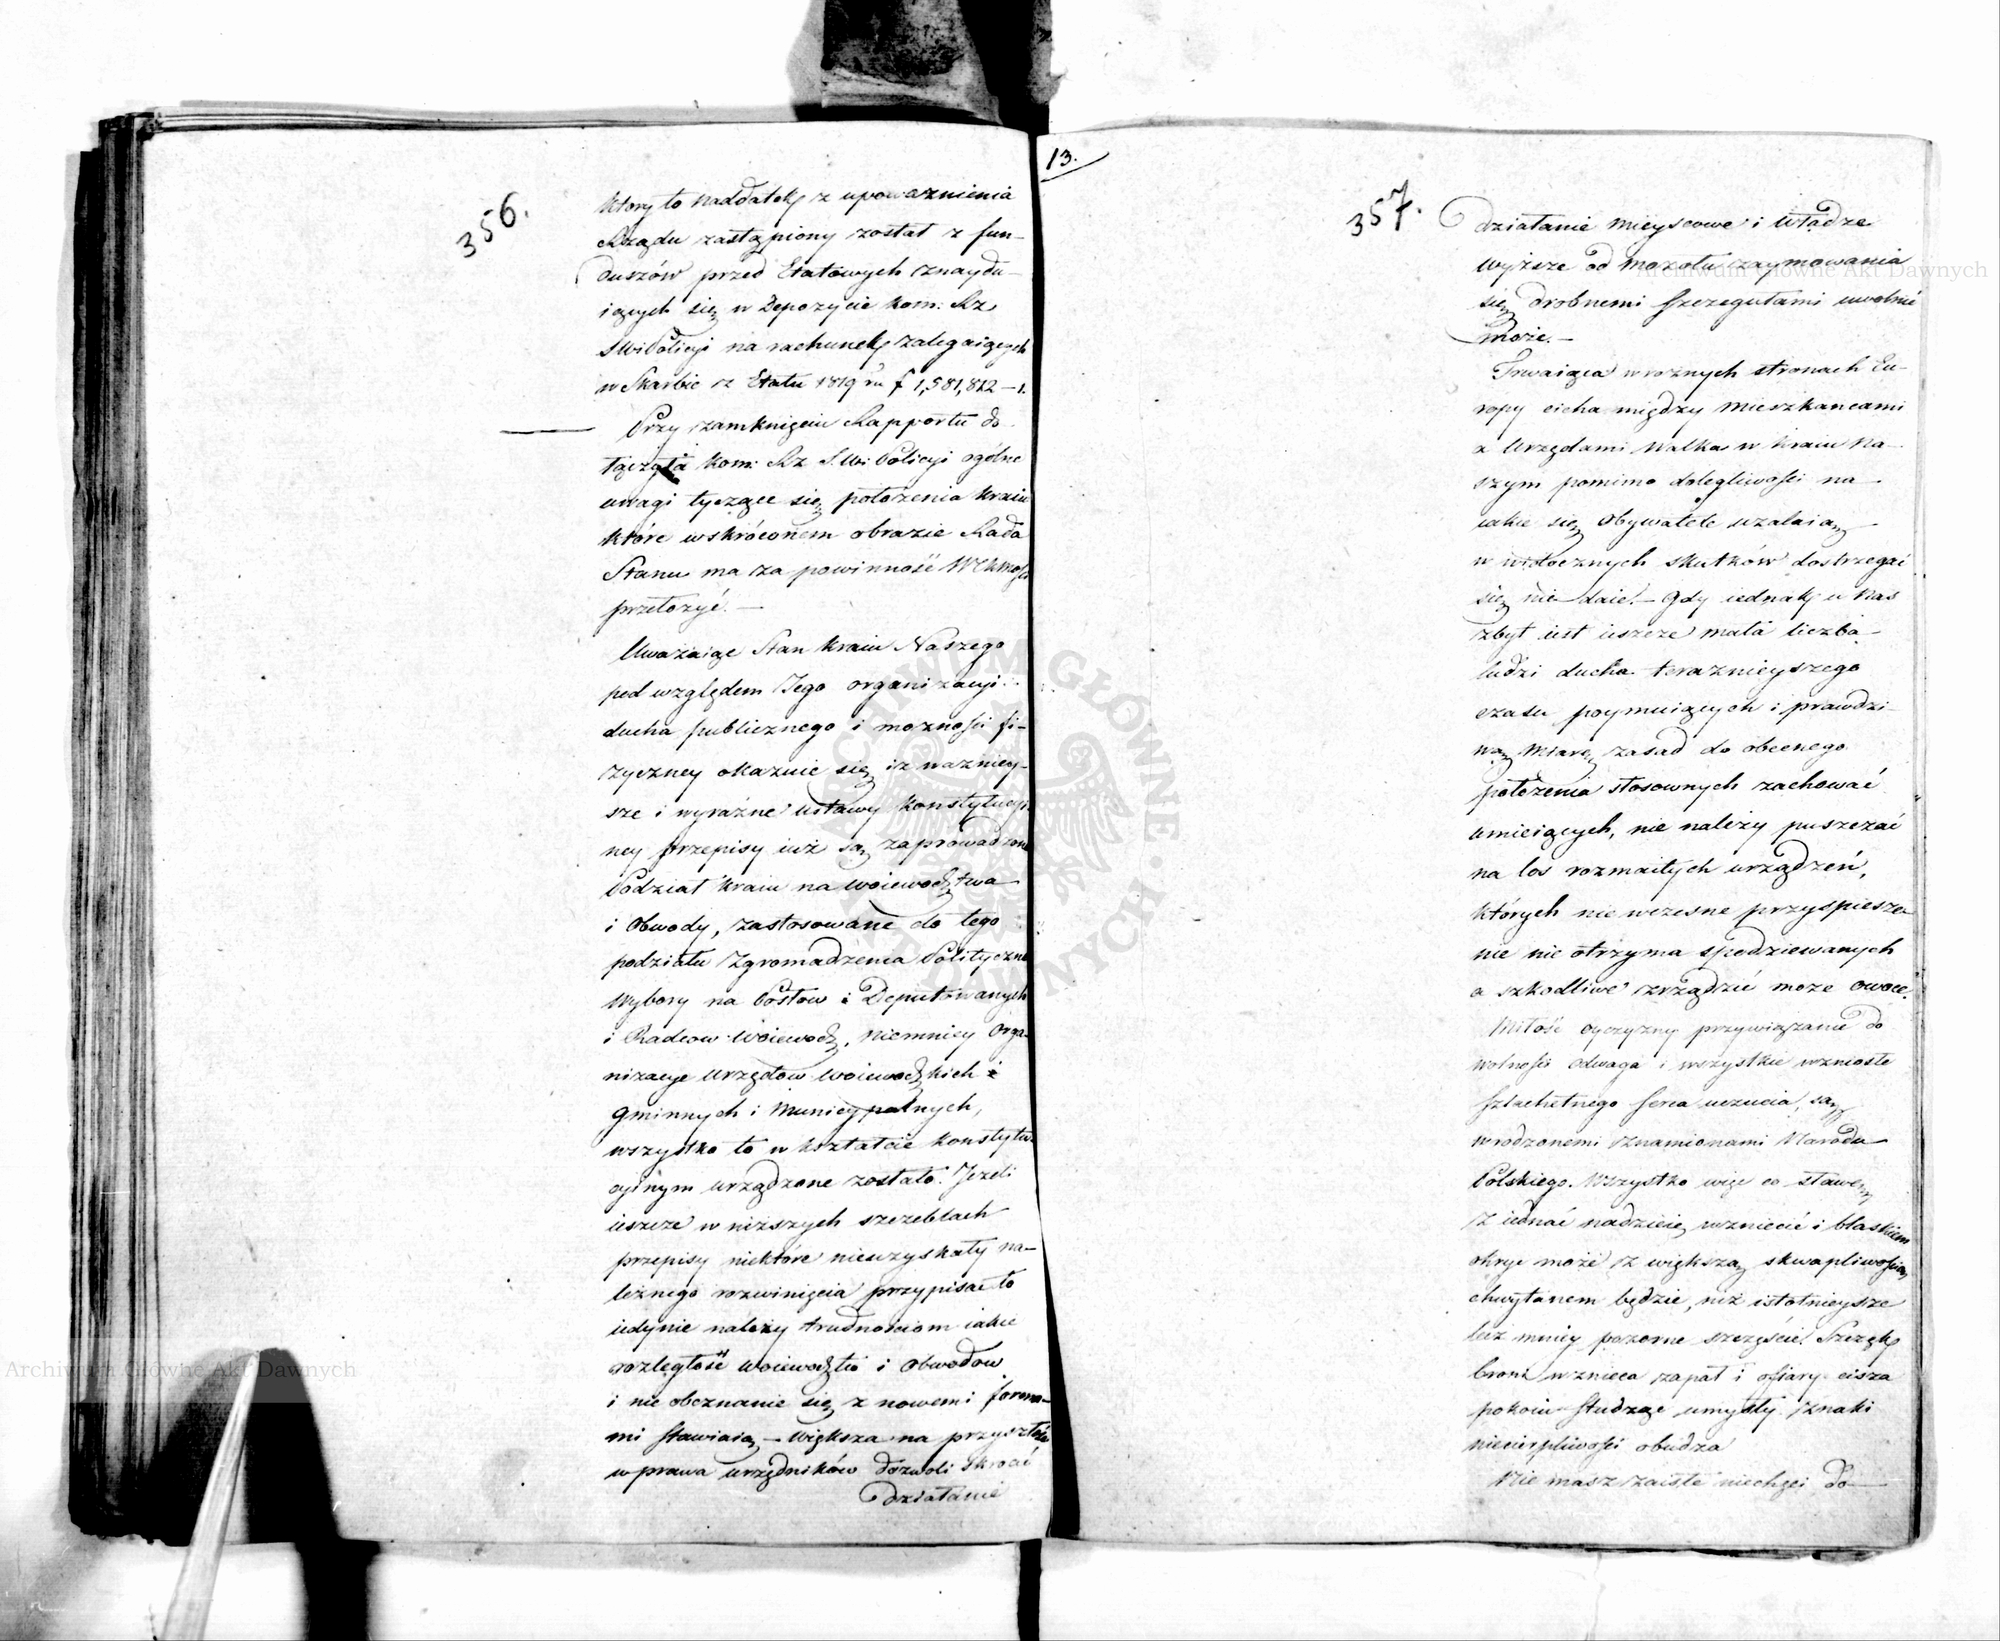 356.
który to naddatek z upoważnienia
Rządu zastąpiony został z fun-
duszów przed Etatowych znaydu-
iących się w Depozycie Kom: Rz.
S W i Policyi na rachunek zalegaiących
w Skarbie z Etatu 1819 ru f 1,581,812 – 1.
Przy zamknięciu Rapportu do
łączyła Kom: Rz S. W i Policyi ogólne
uwagi tyczące się położenia kraiu
które w skróconem obrazie Rada
Stanu ma za powinność WCKMości
przełożyć. —
Uważaiąc Stan kraiu Naszego
pod względem Jego organizacyi
ducha publicznego i możności fi-
zyczney okazuie się iż ważniey-
sze i wyraźne ustawy Konstytucyi-
ney przepisy iuż są zaprowadzone
Podział kraiu na Woiewodztwa
i Obwody, zastosowane do tego
podziału Zgromadzenia Polityczne
Wybory na Posłow i Deputowanych
i Radcow Woiewodz, niemniey Orga-
nizacye Urzędow Woiewodzkich i
Gminnych i Municypalnych,
wszystko to w kształcie konstytu-
cyinym urządzone zostało. Jeżeli
ieszcze w niższych szczeblach
przepisy niektóre nieuzyskały na-
leżnego rozwinięcia przypisać to
iedynie należy trudnościom iakie
rozległość woiewodztw i Obwodow
i nie obeznanie się z nowemi forma-
mi stawiaią – większa na przyszłość
wprawa urzędników dozwoli skrocić
działanie
13.
357.
działanie mieyscowe i Władze
wyższe od mozołu zaymowania
się drobnemi szczegułami uwolnić
może. —
Trwaiąca w roznych stronach Eu-
ropy cicha między mieszkancami
a Urzędami Walka w kraiu na-
szym pomimo dolegliwości na
iakie się Obywatele użalaią
w widocznych skutków dostrzegać
się nie daie. – Gdy iednak u nas
zbyt iest ieszcze mała liczba
ludzi ducha terazniejszego
czasu poymuiących i prawdzi-
wą miarę zasad do obecnego
położenia stosownych zachować
umieiących, nie należy puszczać
na los rozmaitych urządzeń,
których nie wczesne przyspiesze-
nie nie otrzyma spodziewanych
a szkodliwe zrządzić może owoce.
Miłość oyczyzny przywiązanie do
wolności odwaga i wszystkie wzniosłe
szlachetnego serca uczucia, są
wrodzonemi znamionami Narodu
Polskiego. Wszystko więc co sławę
z iednać nadzieię wzniecić i blaskiem
okryć może z większą skwapliwością
chwytanem będzie, niż istotnieysze
lecz mniey pozorne szczęście. Szczęk
broni wznieca zapał i ofiary cisza
pokoiu studząc umysły znaki
niecierpliwości obudza
Nie masz zaiste niechęci do
Archiwum Główne Akt Dawnych
Archiwum Główne Akt Dawnych
ARCHIWUM GŁÓWNE AKT DAWNYCH